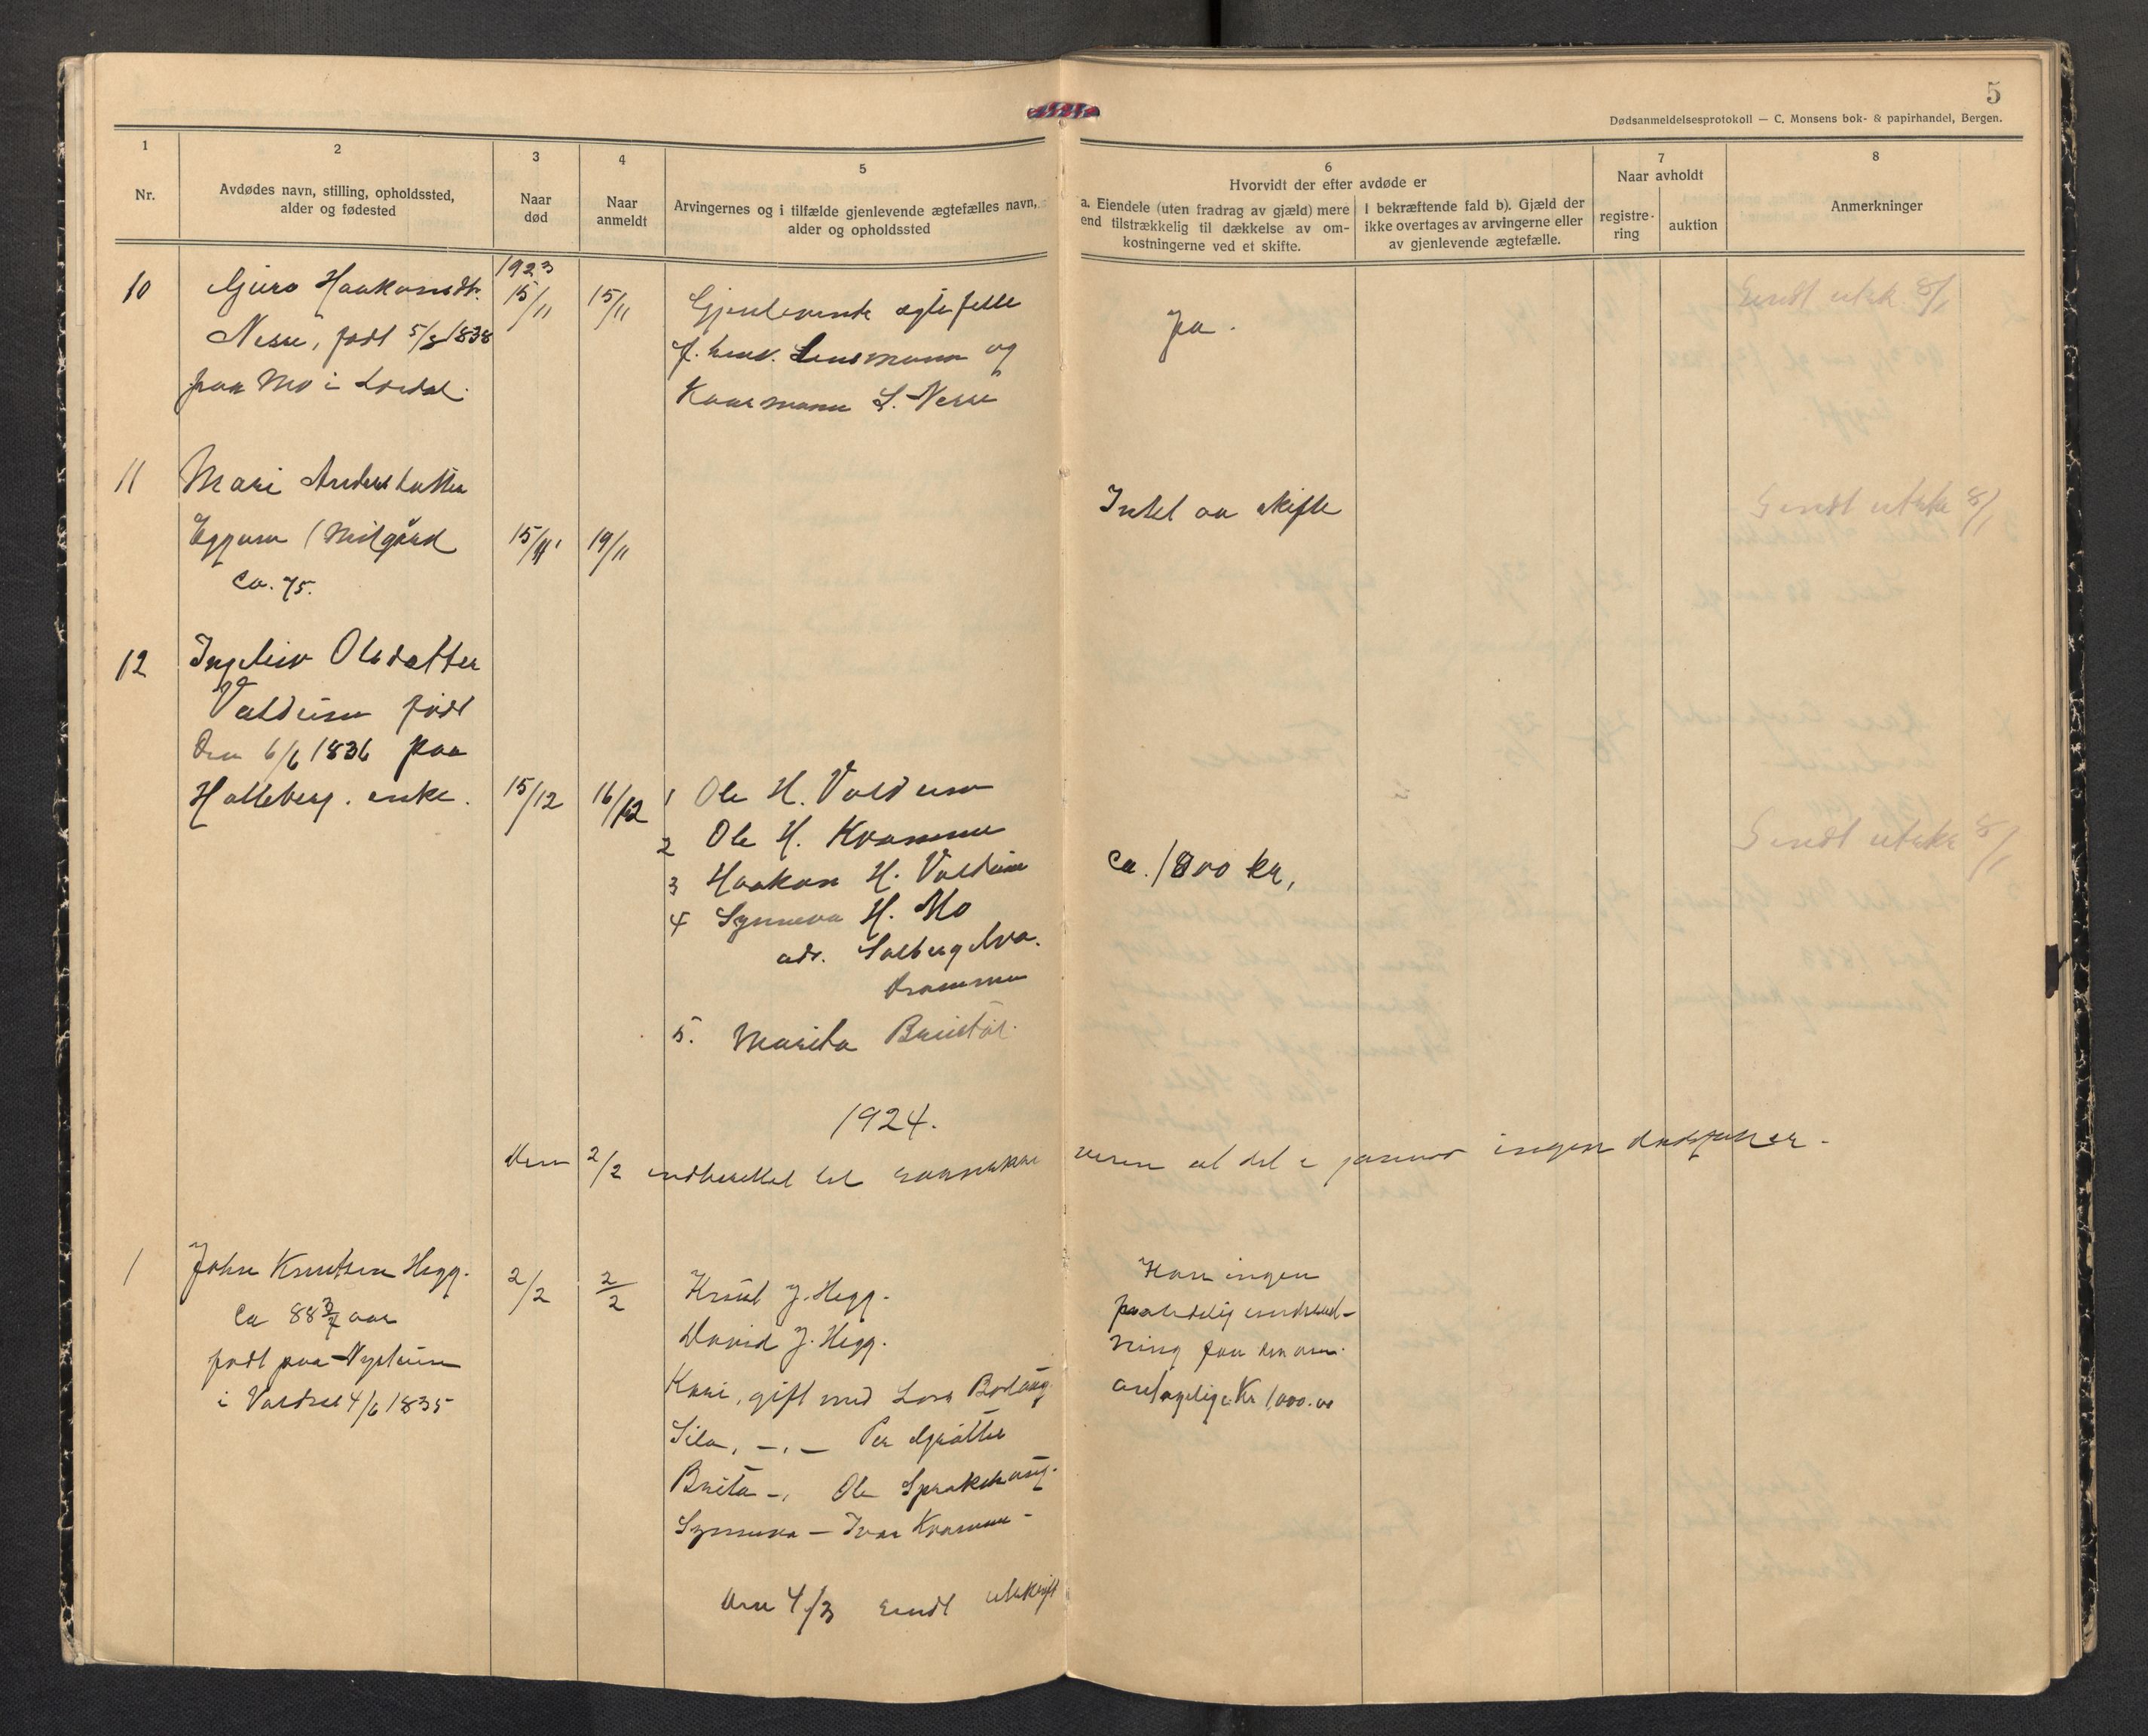 5
Dødsanmeldelsesprotokoll — C. Monsens bok- & papirhandel, Bergen.
1
Nr.
2
Avdødes navn, stilling, opholdssted,
alder og fødested
3
Naar
død
4
Naar
anmeldt
5
Arvingernes og i tilfælde gjenlevende ægtefælles navn,
alder og opholdssted
6
Hvorvidt der efter avdøde er
a. Eiendele (uten fradrag av gjæld) mere
end tilstrækkelig til dækkelse av om-
kostningerne ved et skifte.
I bekræftende fald b). Gjæld der
ikke overtages av arvingerne eller
av gjenlevende ægtefælle.
7
Naar avholdt
registre-
ring
auktion
8
Anmerkninger
1923
10 Guro Haakonsdtr. 15/11 15/11 Gjenlevende egtefelle Ja. Sendt utsk. 8/1
Nesse, født 5/3 1838 f. henv. Lensmann og
paa Mo i Lærdal. L. Nesse
11 Mari Andersdatter Intet aa skifte Sendt utskr 8/1
Eggum (Midgård 15/11 19/11
Ca. 75.
12 Ingeleiv Olsdatter
Voldum født
Den 6/6 1836 paa
Halleberg. enke. 15/12 16/12 1 Ole H. Voldum
2 Ole H. Kvamme
3 Haakon H. Voldum ca. 1800 kr, Sendt utskr 8/1
4 Synneva H. Mo
adr. Solbergelva.
Drammen
5. Marita
1924.
Den 2/2 indberettet til veren at det i januar ingen dødsfall er.
1 John Knutsen Hegg. 2/2 2/2 Knut J. Hegg. Kan ingen
Ca 88 aar David J. Hegg. paalidelig
født paa Nystuen Kari, gift med Lars ning faa men
i Valdres 4/6 1835 antagelig Kr 1,000.00
Sila, -,- Per Grøtte
Brita -, Ole
Synneva - Ivar Kvamme -
Den 4/3 sendt utskrift